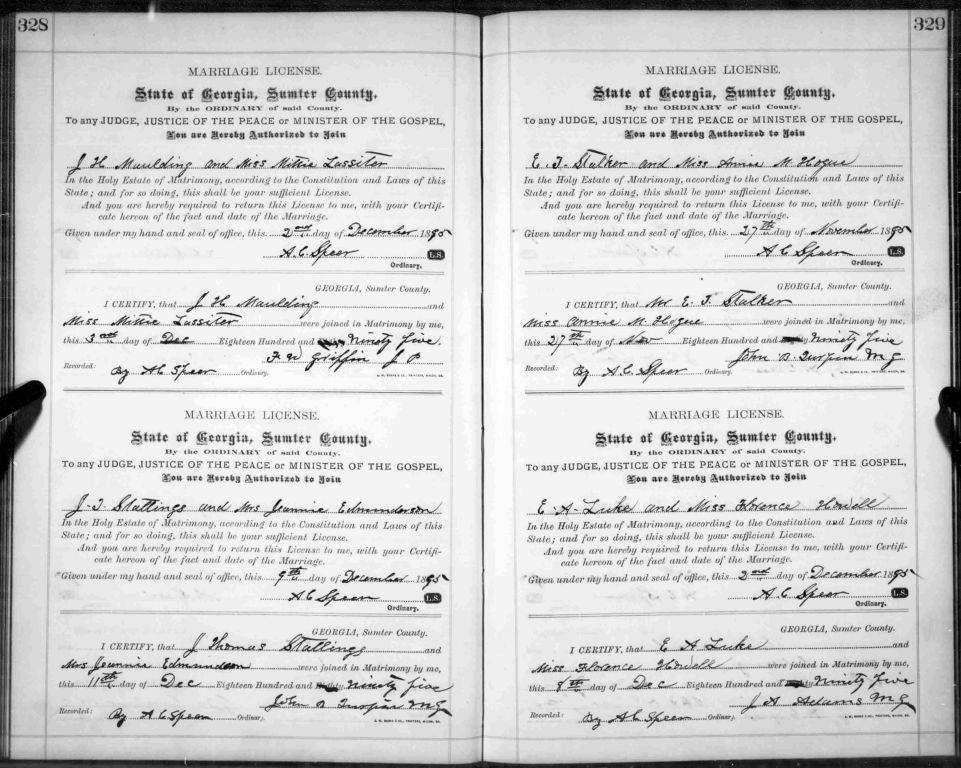 328
MARRIAGE LICENSE.
State of Georgia, Sumter County.
By the ORDINARY of said County.
To any JUDGE, JUSTICE OF THE PEACE or MINISTER OF THE GOSPEL,
You are Hereby Authorized to Join
J H Maulding and Miss Mittie Lassiter
In the Holy Estate of Matrimony, according to the Constitution and Laws of this
State; and for so doing, this shall be your sufficient License.
And you are hereby required to return this License to me, with your Certifi-
cate hereon of the fact and date of the Marriage.
Given under my hand and seal of office, this 2nd day of December 1895
A. C. Speer L.S.
Ordinary.
GEORGIA, Sumter County.
I CERTIFY, that J H Maulding and
Miss Mittie Lassiter were joined in Matrimony by me,
this 3 day of Dec Eighteen Hundred and Ninety five
F. W Griffin J P
Recorded: By A C Speer Ordinary.
MARRIAGE LICENSE.
State of Georgia, Sumter County.
By the ORDINARY of said County.
To any JUDGE, JUSTICE OF THE PEACE or MINISTER OF THE GOSPEL,
You are Hereby Authorized to Join
J. T. Stallings and Mrs Jeannie Edmunderson
In the Holy Estate of Matrimony, according to the Constitution and Laws of this
State; and for so doing, this shall be your sufficient License.
And you are hereby required to return this License to me, with your Certifi-
cate hereon of the fact and date of the Marriage.
Given under my hand and seal of office, this 9th day of December 1895
A C Speer L.S.
Ordinary.
GEORGIA, Sumter County.
I CERTIFY, that J Thomas Stallings and
Mrs Jeannie Edmundson were joined in Matrimony by me,
this 11th day of Dec Eighteen Hundred and Eighty Ninety five
John B Turpin M G
Recorded: By A C Speer Ordinary.
329
MARRIAGE LICENSE.
State of Georgia, Sumter County.
By the ORDINARY of said County.
To any JUDGE, JUSTICE OF THE PEACE or MINISTER OF THE GOSPEL,
You are Hereby Authorized to Join
E. T. Stalker and Miss Annie M. Hogue
In the Holy Estate of Matrimony, according to the Constitution and Laws of this
State; and for so doing, this shall be your sufficient License.
And you are hereby required to return this License to me, with your Certifi-
cate hereon of the fact and date of the Marriage.
Given under my hand and seal of office, this 27th day of November 1895
A C Speer L.S.
Ordinary.
GEORGIA, Sumter County.
I CERTIFY, that Mr E. T. Stalker and
Miss Annie M. Hogue were joined in Matrimony by me,
this 27th day of Nov Eighteen Hundred and Ninety five
John B. Turpin M G
Recorded: By A. C. Speer Ordinary.
MARRIAGE LICENSE.
State of Georgia, Sumter County.
By the ORDINARY of said County.
To any JUDGE, JUSTICE OF THE PEACE or MINISTER OF THE GOSPEL,
You are Hereby Authorized to Join
E. A. Luke and Miss Florence Howell
In the Holy Estate of Matrimony, according to the Constitution and Laws of this
State; and for so doing, this shall be your sufficient License.
And you are hereby required to return this License to me, with your Certifi-
cate hereon of the fact and date of the Marriage.
Given under my hand and seal of office, this 2nd day of December 1895
A. C. Speer L.S.
Ordinary.
GEORGIA, Sumter County.
I CERTIFY, that E A Luke and
Miss Florence Howell were joined in Matrimony by me,
this 8th day of Dec Eighteen Hundred and Ninety five
J A Adams M G
Recorded: By A C Speer Ordinary.